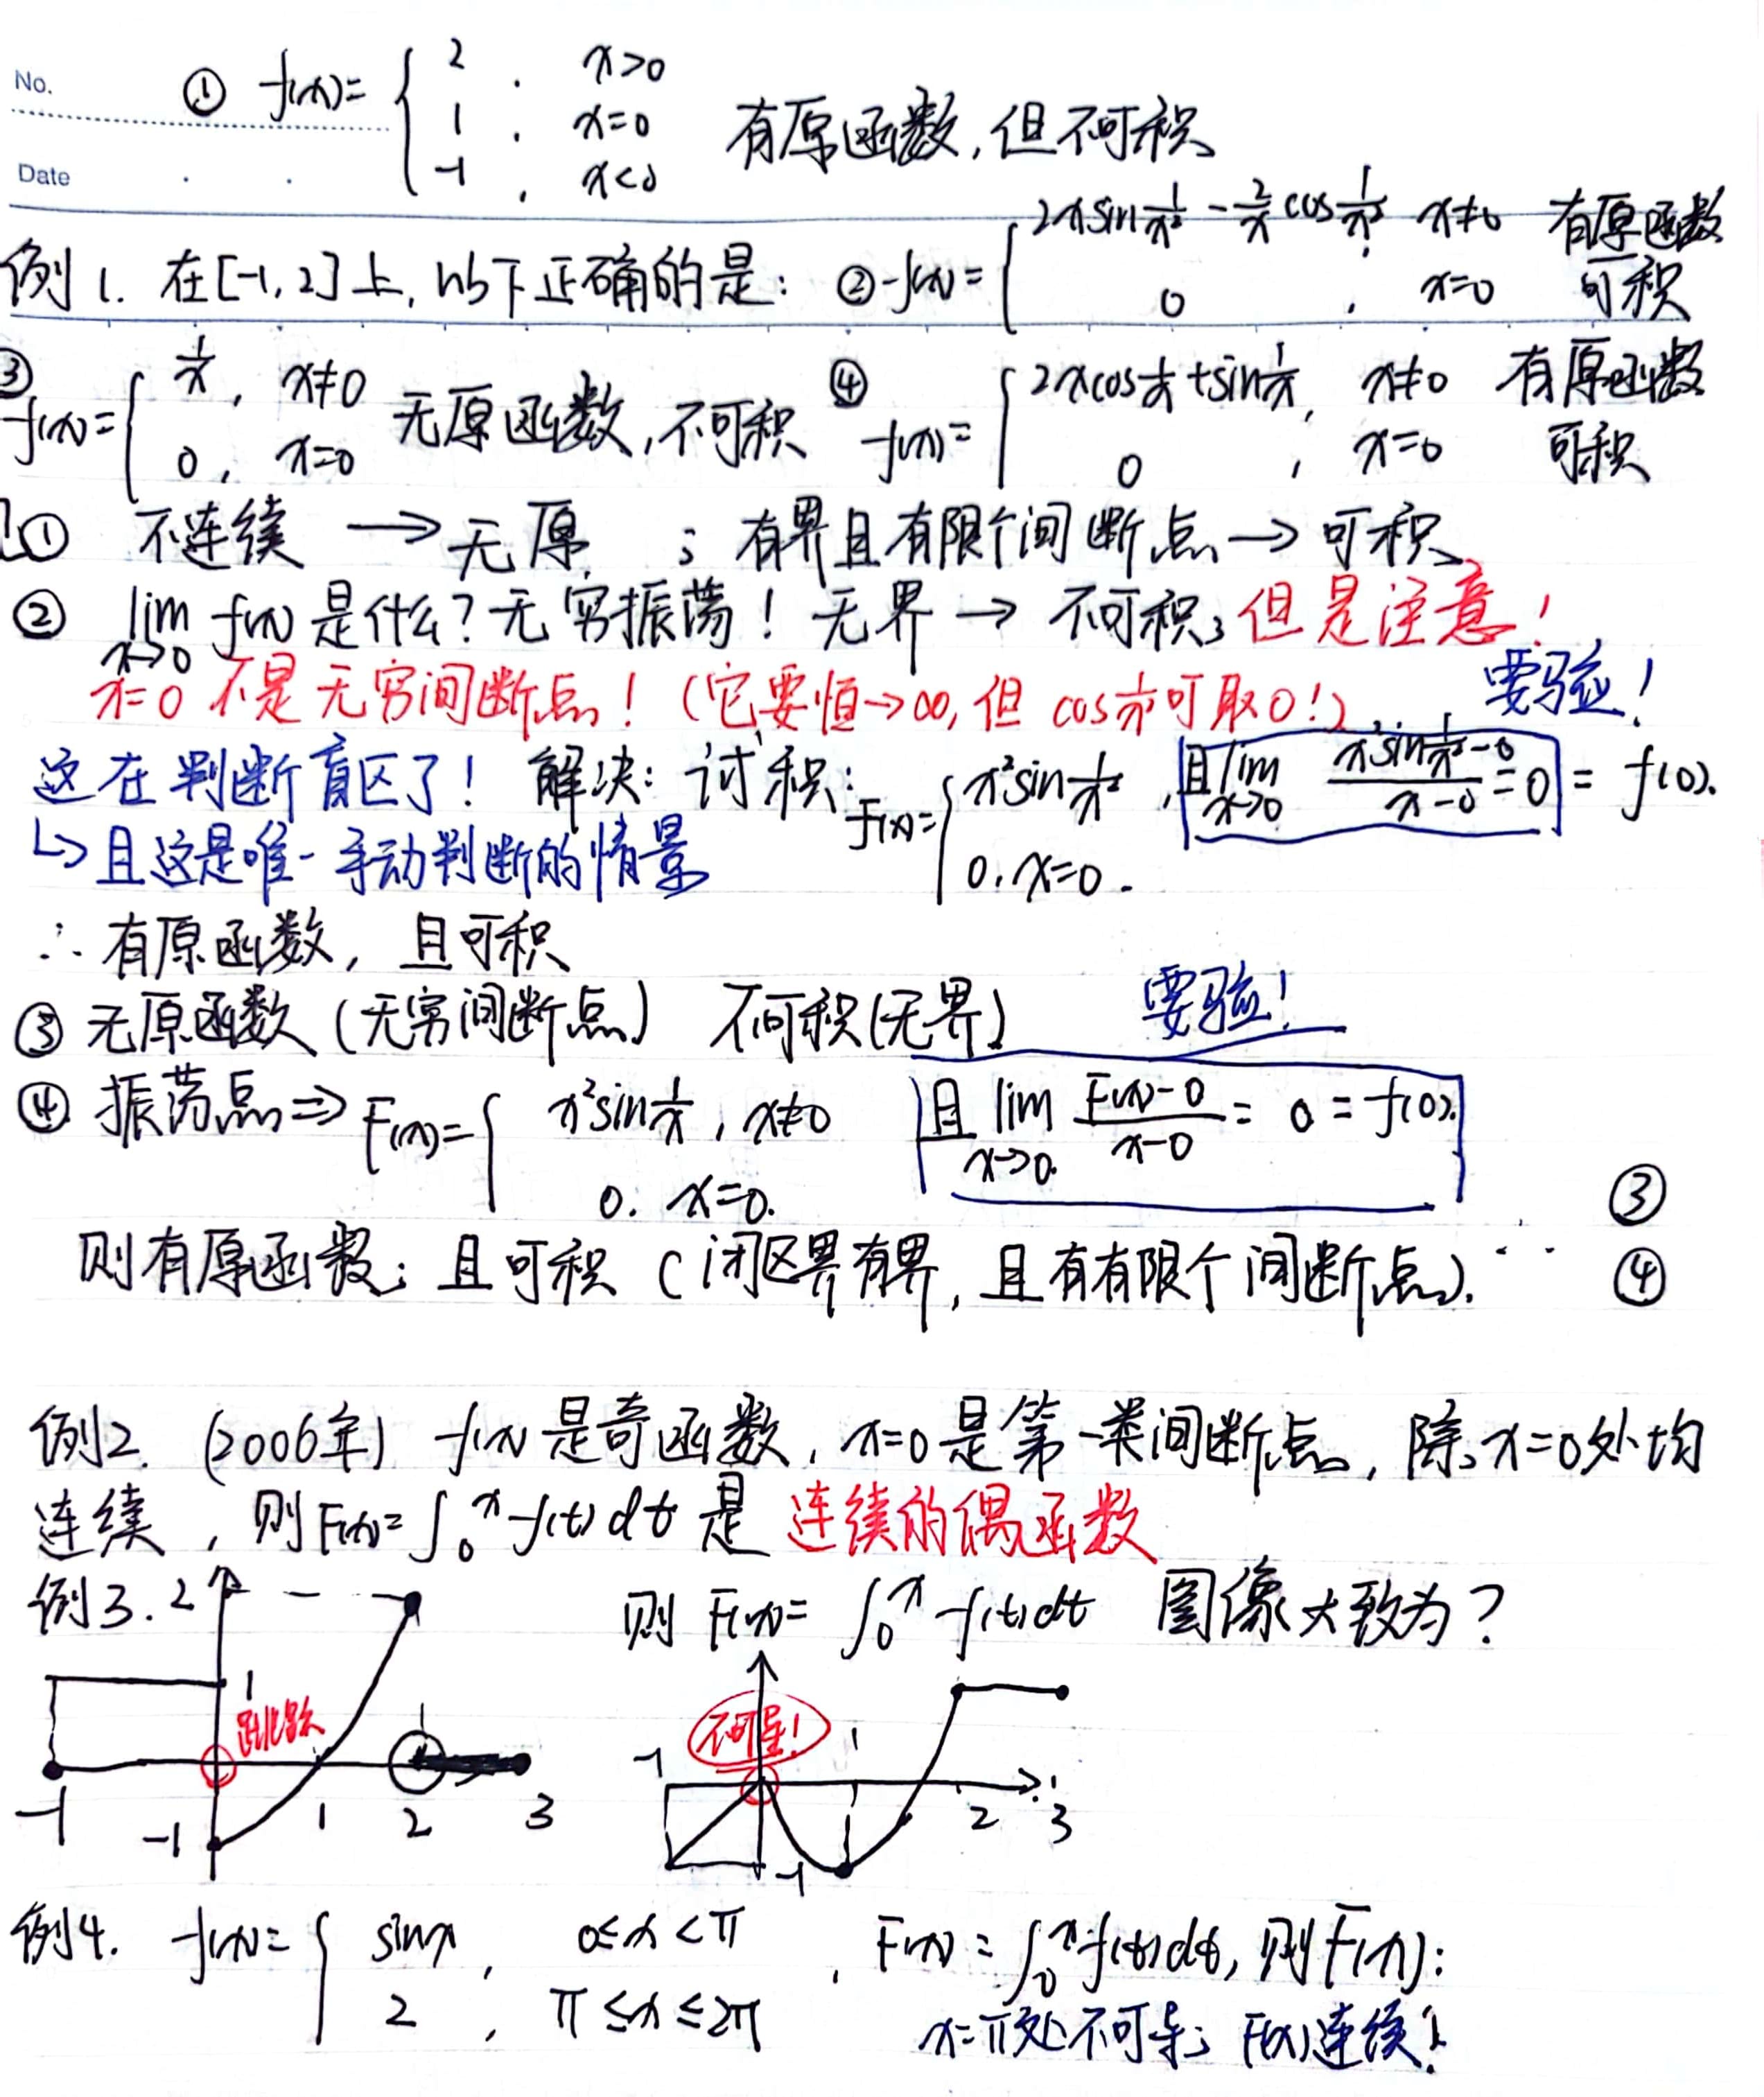 No.
① f(x)= { 2 , x>0
1 , x=0 有原函数, 但不可积
-1 , x<0
Date
例1. 在[-1,2]上, 以下正确的是: ② f(x)= { 2xsin1/x² - 2/x cos1/x², x≠0 有原函数
0 , x=0 可积
③ f(x)= { 1/x , x≠0 无原函数, 不可积
0 , x=0
④ f(x)= { 2xcos1/x + sin1/x, x≠0 有原函数
0 , x=0 可积
① 不连续 → 无原 ; 有界且有限个间断点 → 可积
② lim x→0 f(x) 是什么? 无穷振荡! 无界 → 不可积; 但是注意!
x=0 不是无穷间断点! (它要恒→∞, 但 cos1/x²可取0!) 要验!
这在判断盲区了! 解决: 讨积: F(x)= { x²sin1/x² , 且lim x→0 (x²sin1/x²-0)/(x-0) =0 = f(0).
↳ 且这是唯一手动判断的情景 0, x=0.
∴ 有原函数, 且可积
③ 无原函数 (无穷间断点) 不可积(无界) 要验!
④ 振荡点⇒ F(x)= { x²sin1/x , x≠0 且 lim x→0 (F(x)-0)/(x-0) = 0 = f(0).
0. x=0.
③
则有原函数; 且可积 (闭区界有界, 且有有限个间断点).
④
例2. (2006年) f(x)是奇函数, x=0是第一类间断点, 除x=0处均
连续, 则F(x)=∫₀ˣf(t)dt 是 连续的偶函数
例3. 2 则 F(x)= ∫₀ˣ f(t)dt 图像大致为?
1 跳跃
-1 -1 1 2 3
不可导!
-1 1 -1 2 3
例4. f(x)= { sinx , 0≤x<π , F(x) = ∫₀ˣf(t)dt, 则F(x):
2 , π≤x≤2π x=π处不可导; F(x)连续!